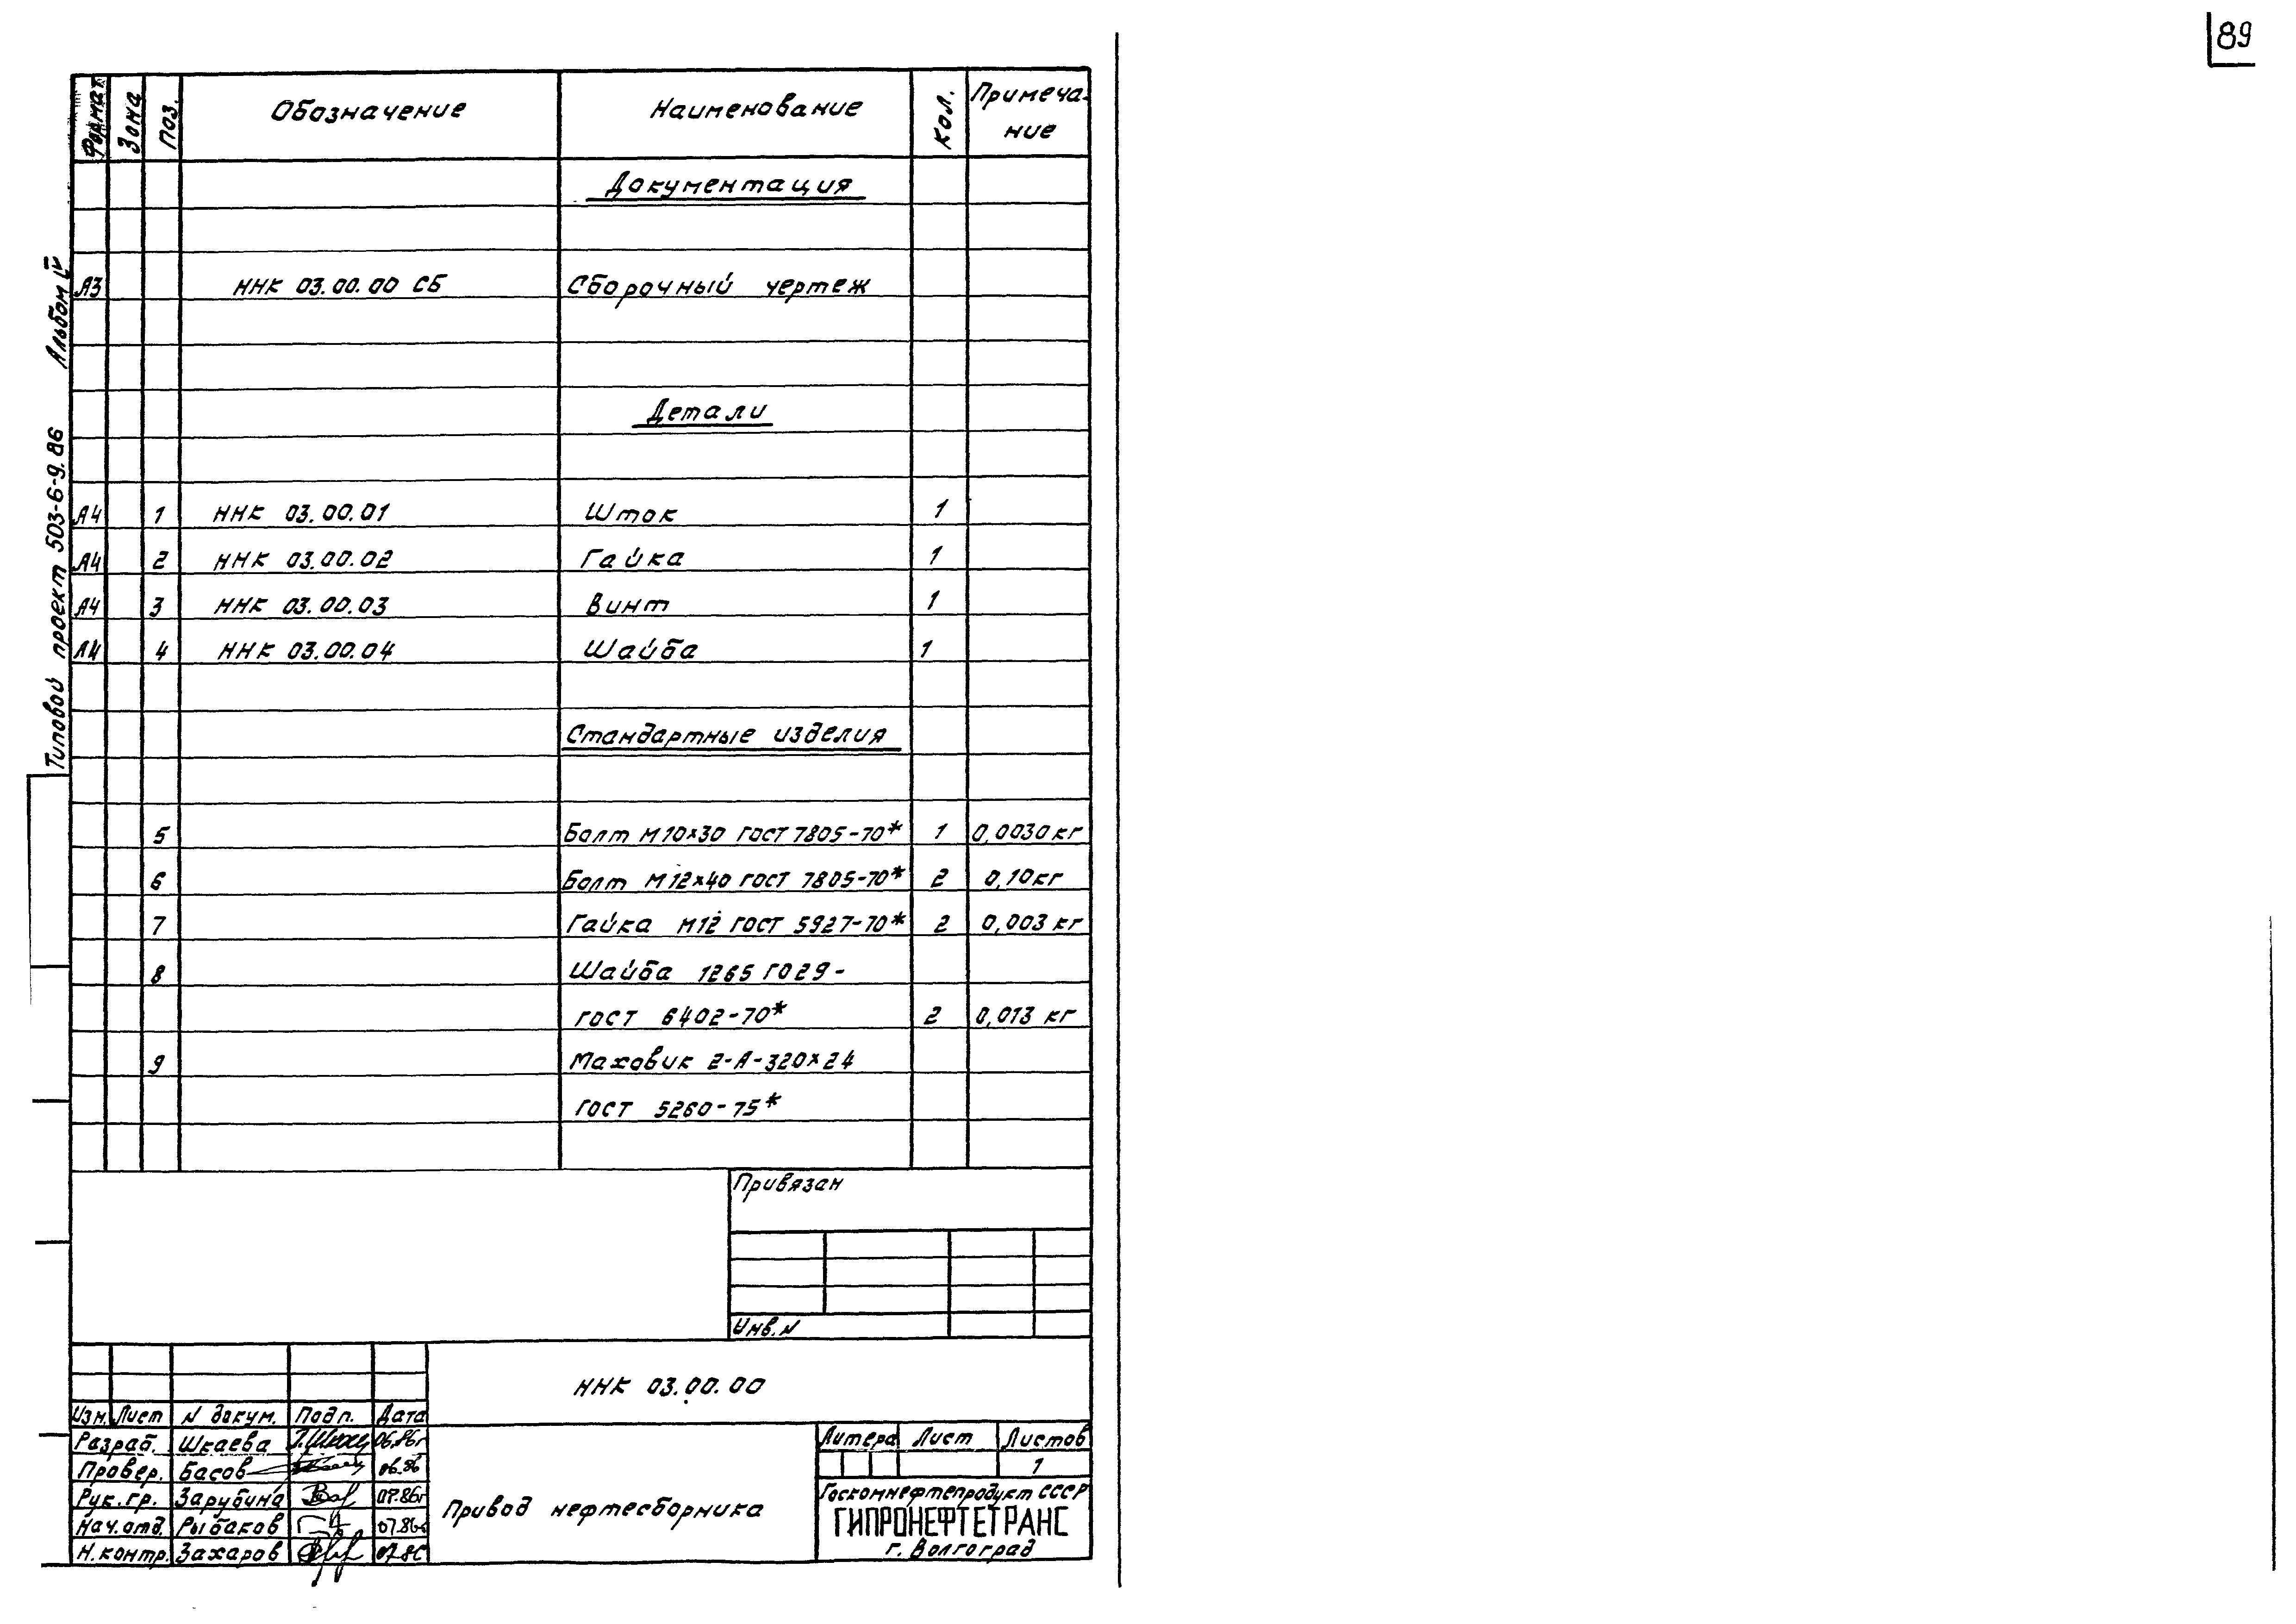 89
Типовой проект 503-6-9.86 Альбом IV
Формат Зона Поз. Обозначение Наименование Кол. Примеча-
ние
Документация
А3 ННК 03.00.00 СБ Сборочный чертеж
Детали
А4 1 ННК 03.00.01 Шток 1
А4 2 ННК 03.00.02 Гайка 1
А4 3 ННК 03.00.03 Винт 1
А4 4 ННК 03.00.04 Шайба 1
Стандартные изделия
5 Болт М10×30 ГОСТ 7805-70* 1 0,0030 кг
6 Болт М12×40 ГОСТ 7805-70* 2 0,10 кг
7 Гайка М12 ГОСТ 5927-70* 2 0,003 кг
8 Шайба 1265 Г029-
ГОСТ 6402-70* 2 0,013 кг
9 Маховик 2-А-320×24
ГОСТ 5260-75*
Привязан
Инв. N
ННК 03.00.00
Изм. Лист N докум. Подп. Дата
Разраб. Шкаева 06.86г
Провер. Басов 06.86
Рук. гр. Зарубина 07.86г
Нач. отд. Рыбаков 07.86г
Н. контр. Захаров 07.86
Привод нефтесборника
Литера Лист Листов
1
Госкомнефтепродукт СССР
ГИПРОНЕФТЕТРАНС
г. Волгоград